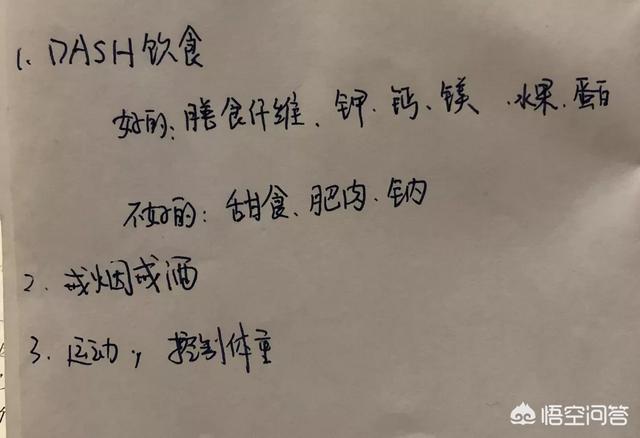 1. DASH饮食
好的：膳食仟维、钾、钙、镁、水果、蛋白
不好的：甜食、肥肉、钠
2. 戒烟戒酒
3. 运动，控制体重
悟空问答